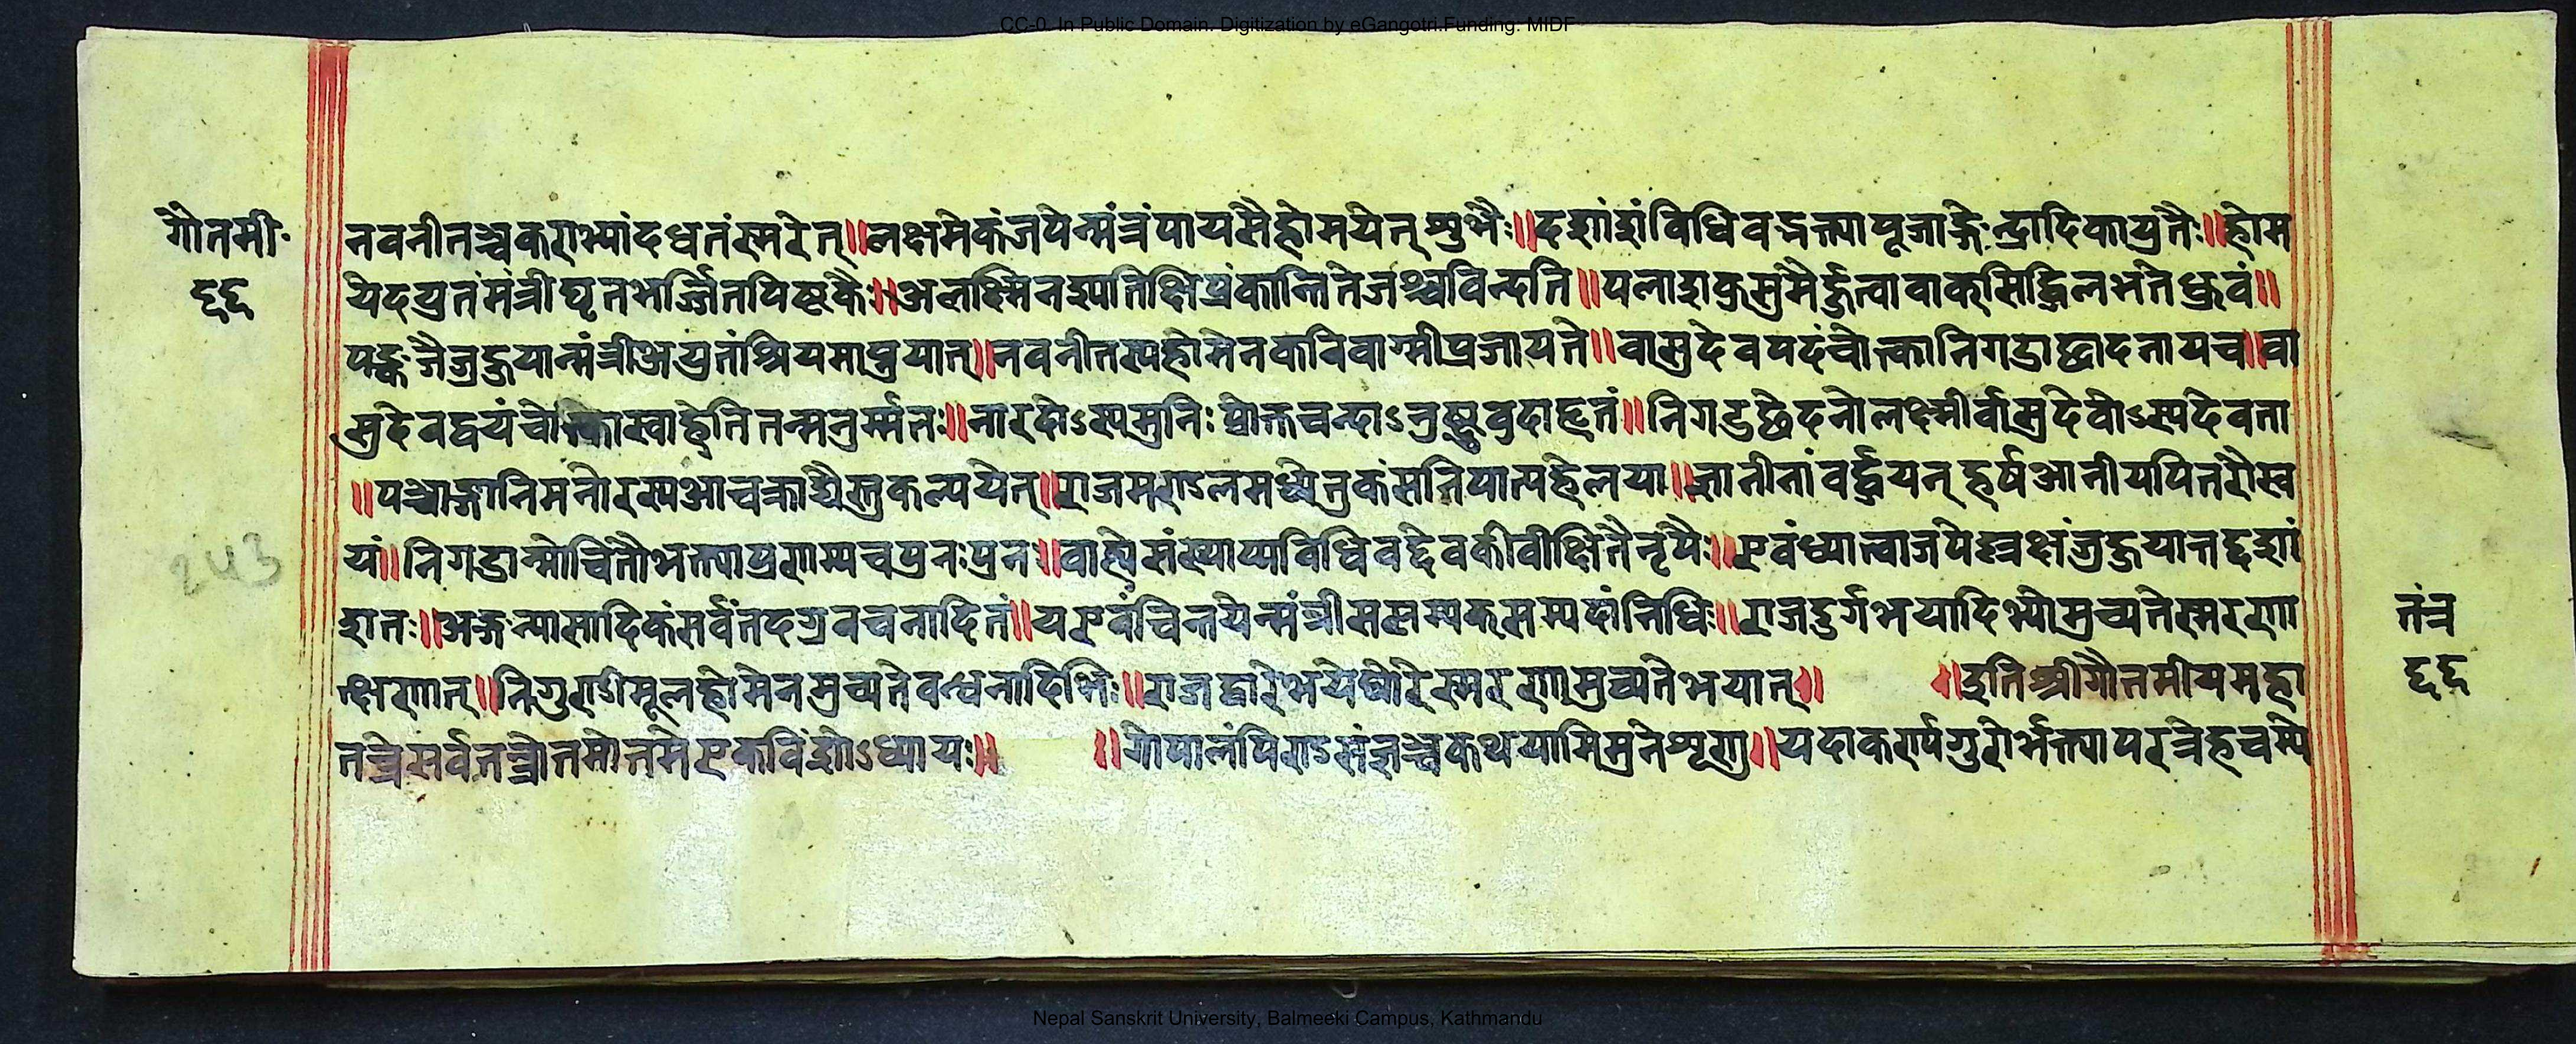 CC-0. In Public Domain. Digitization by eGangotri.Funding: MIDF
गौतमी॰
६६
नवनीतञ्चकराभ्यांदधतंस्मरेत्॥लक्षमेकंजपेन्मंत्रंपायसैर्होमयेत्शुभैः॥दशांशंविधिवद्भक्त्यापूजाङ्गेन्द्रादिकायुतैः॥होम
येदयुतंमंत्रीघृतभर्ज्जितपिष्टकैः॥अलक्ष्मिनश्यतिक्षिप्रंकान्तितेजश्चविन्दति॥पलाशकुसुमैर्हुत्वावाक्सिद्धिलभतेध्रुवं॥
पङ्कजैर्जुहुयान्मंत्रीअयुतंश्रियमाप्नुयात्॥नवनीतस्यहोमेनकविवाग्मीप्रजायते॥वासुदेवपदंचोक्त्कानिगडाच्छादनायच॥वा
सुदेवद्वयंचोक्त्कास्वाहेतितन्मनुर्म्मतः॥नारदोऽस्यमुनिःप्रोक्तचन्दाऽनुष्टुवुदाहृतं॥निगडछेदनोलक्ष्मीर्वासुदेवोऽस्यदेवता
॥पञ्चाङ्गानिमनोरस्यआचक्राद्यैस्तुकल्पयेत्॥राजमण्डलमध्येतुकंसंनिपात्यहेलया॥ज्ञातीनांवर्द्धयन्हर्षआनीयपितरौस्व
यं॥निगडान्मोचितौभक्त्याप्रणम्यचपुनःपुनः॥वाह्येसंस्थाप्यविधिवद्देवकीवीक्षितैर्नृपैः॥एवंध्यात्वाजपेल्लक्षंजुहुयात्तद्दशां
शतः॥अङ्गन्यासादिकंसर्वंतदग्रवचनादितं॥यएवंचिन्तयेन्मंत्रीससम्यक्सम्पदांनिधिः॥राजदुर्गभयादिभ्योमुच्यतेस्मरणा
त्क्षणात्॥निगुण्डीमूलहोमेनमुच्यतेवन्धनादिभिः॥राजद्वारेभयेघोरेस्मरणान्मुच्यतेभयात्॥ ॥इतिश्रीगौतमीयमहा
तन्त्रेसर्वतन्त्रोतमोतमेएकविंशोऽध्यायः॥ ॥गोपालंपिण्डसंज्ञञ्चकथयामिमुनेशृणु॥यदाकर्ण्यगुरोर्भक्त्यापरत्रेहचस्मे
243
तंत्र
६६
Nepal Sanskrit University, Balmeeki Campus, Kathmandu